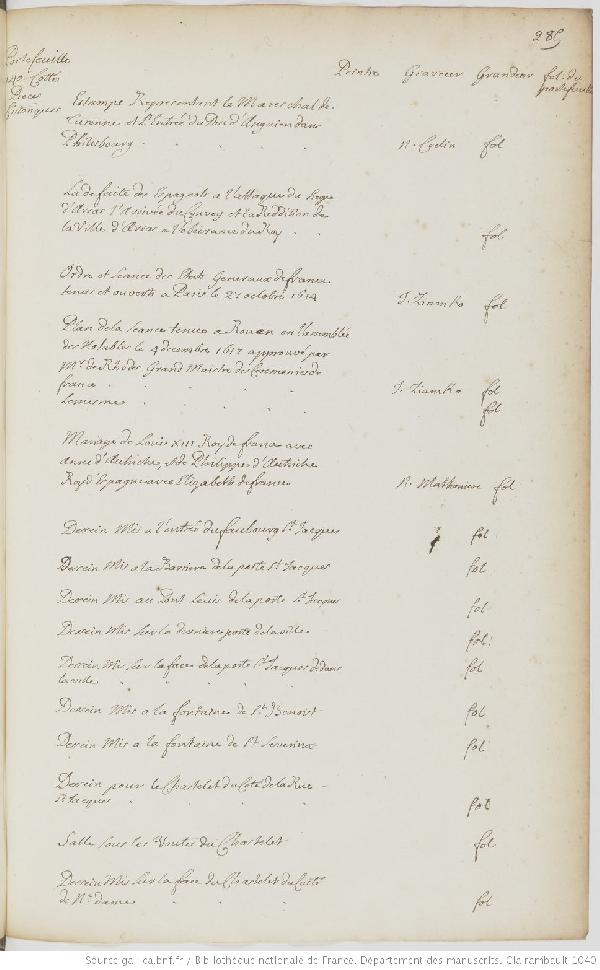 285
Portefeuille
140 Cotté
Pieces
historiques
Peintre Graveur Grandeur fol: du
portefeuille
Estampe Representant le Mareschal de
Turenne et l'Entrée du Duc d'Anguien dans
Philisbourg . . . . N. Coclin fol
La defaite des Espagnols a l'attaque du siege
d'Arras l'Arrivée du Convoy et la Reddition de
la Ville d'Arras a l'obeissance du Roy . . fol
Ordre et seance des Etats Generaux de france
tenus et ouverts a Paris le 27 octobre 1614 J. Ziarnko fol
Plan de la seance tenue a Rouen en l'assemblée
des Notables le 4 decembre 1617 approuvé par
Mr. de Rhodes Grand Maistre des Ceremonies de
france . . . . . J. Ziarnko fol
Lemesme . . . . . fol
Mariage de Louis XIII Roy de france avec
Anne d'Autriche, et de Philippes d'Autriche
Roy d'Espagne avec Elizabeth de france N. Mathoniere fol
Dessein Mis a l'entrée du faubourg St. Jacques fol
Dessein Mis a la Barriere de la porte St. Jacques fol
Dessein Mis au Pont Levis de la porte St. Jacques fol
Dessein Mis sur la derniere porte de la ville fol
Dessein Mis sur la face de la porte St. Jacques dedans
la ville . . . . fol
Dessein Mis a la fontaine de St. Benoist fol
Dessein Mis a la fontaine de St. Severin fol
Dessein pour le Chastelet du Coté de la Rue
St. Jacques . . . . fol
Salle sous les Voutes du Chastelet fol
Dessein Mis sur la face du Chastelet du Costé
de Ne. dame . . . fol
Source gallica.bnf.fr / Bibliothèque nationale de France. Département des manuscrits. Clairambault 1040